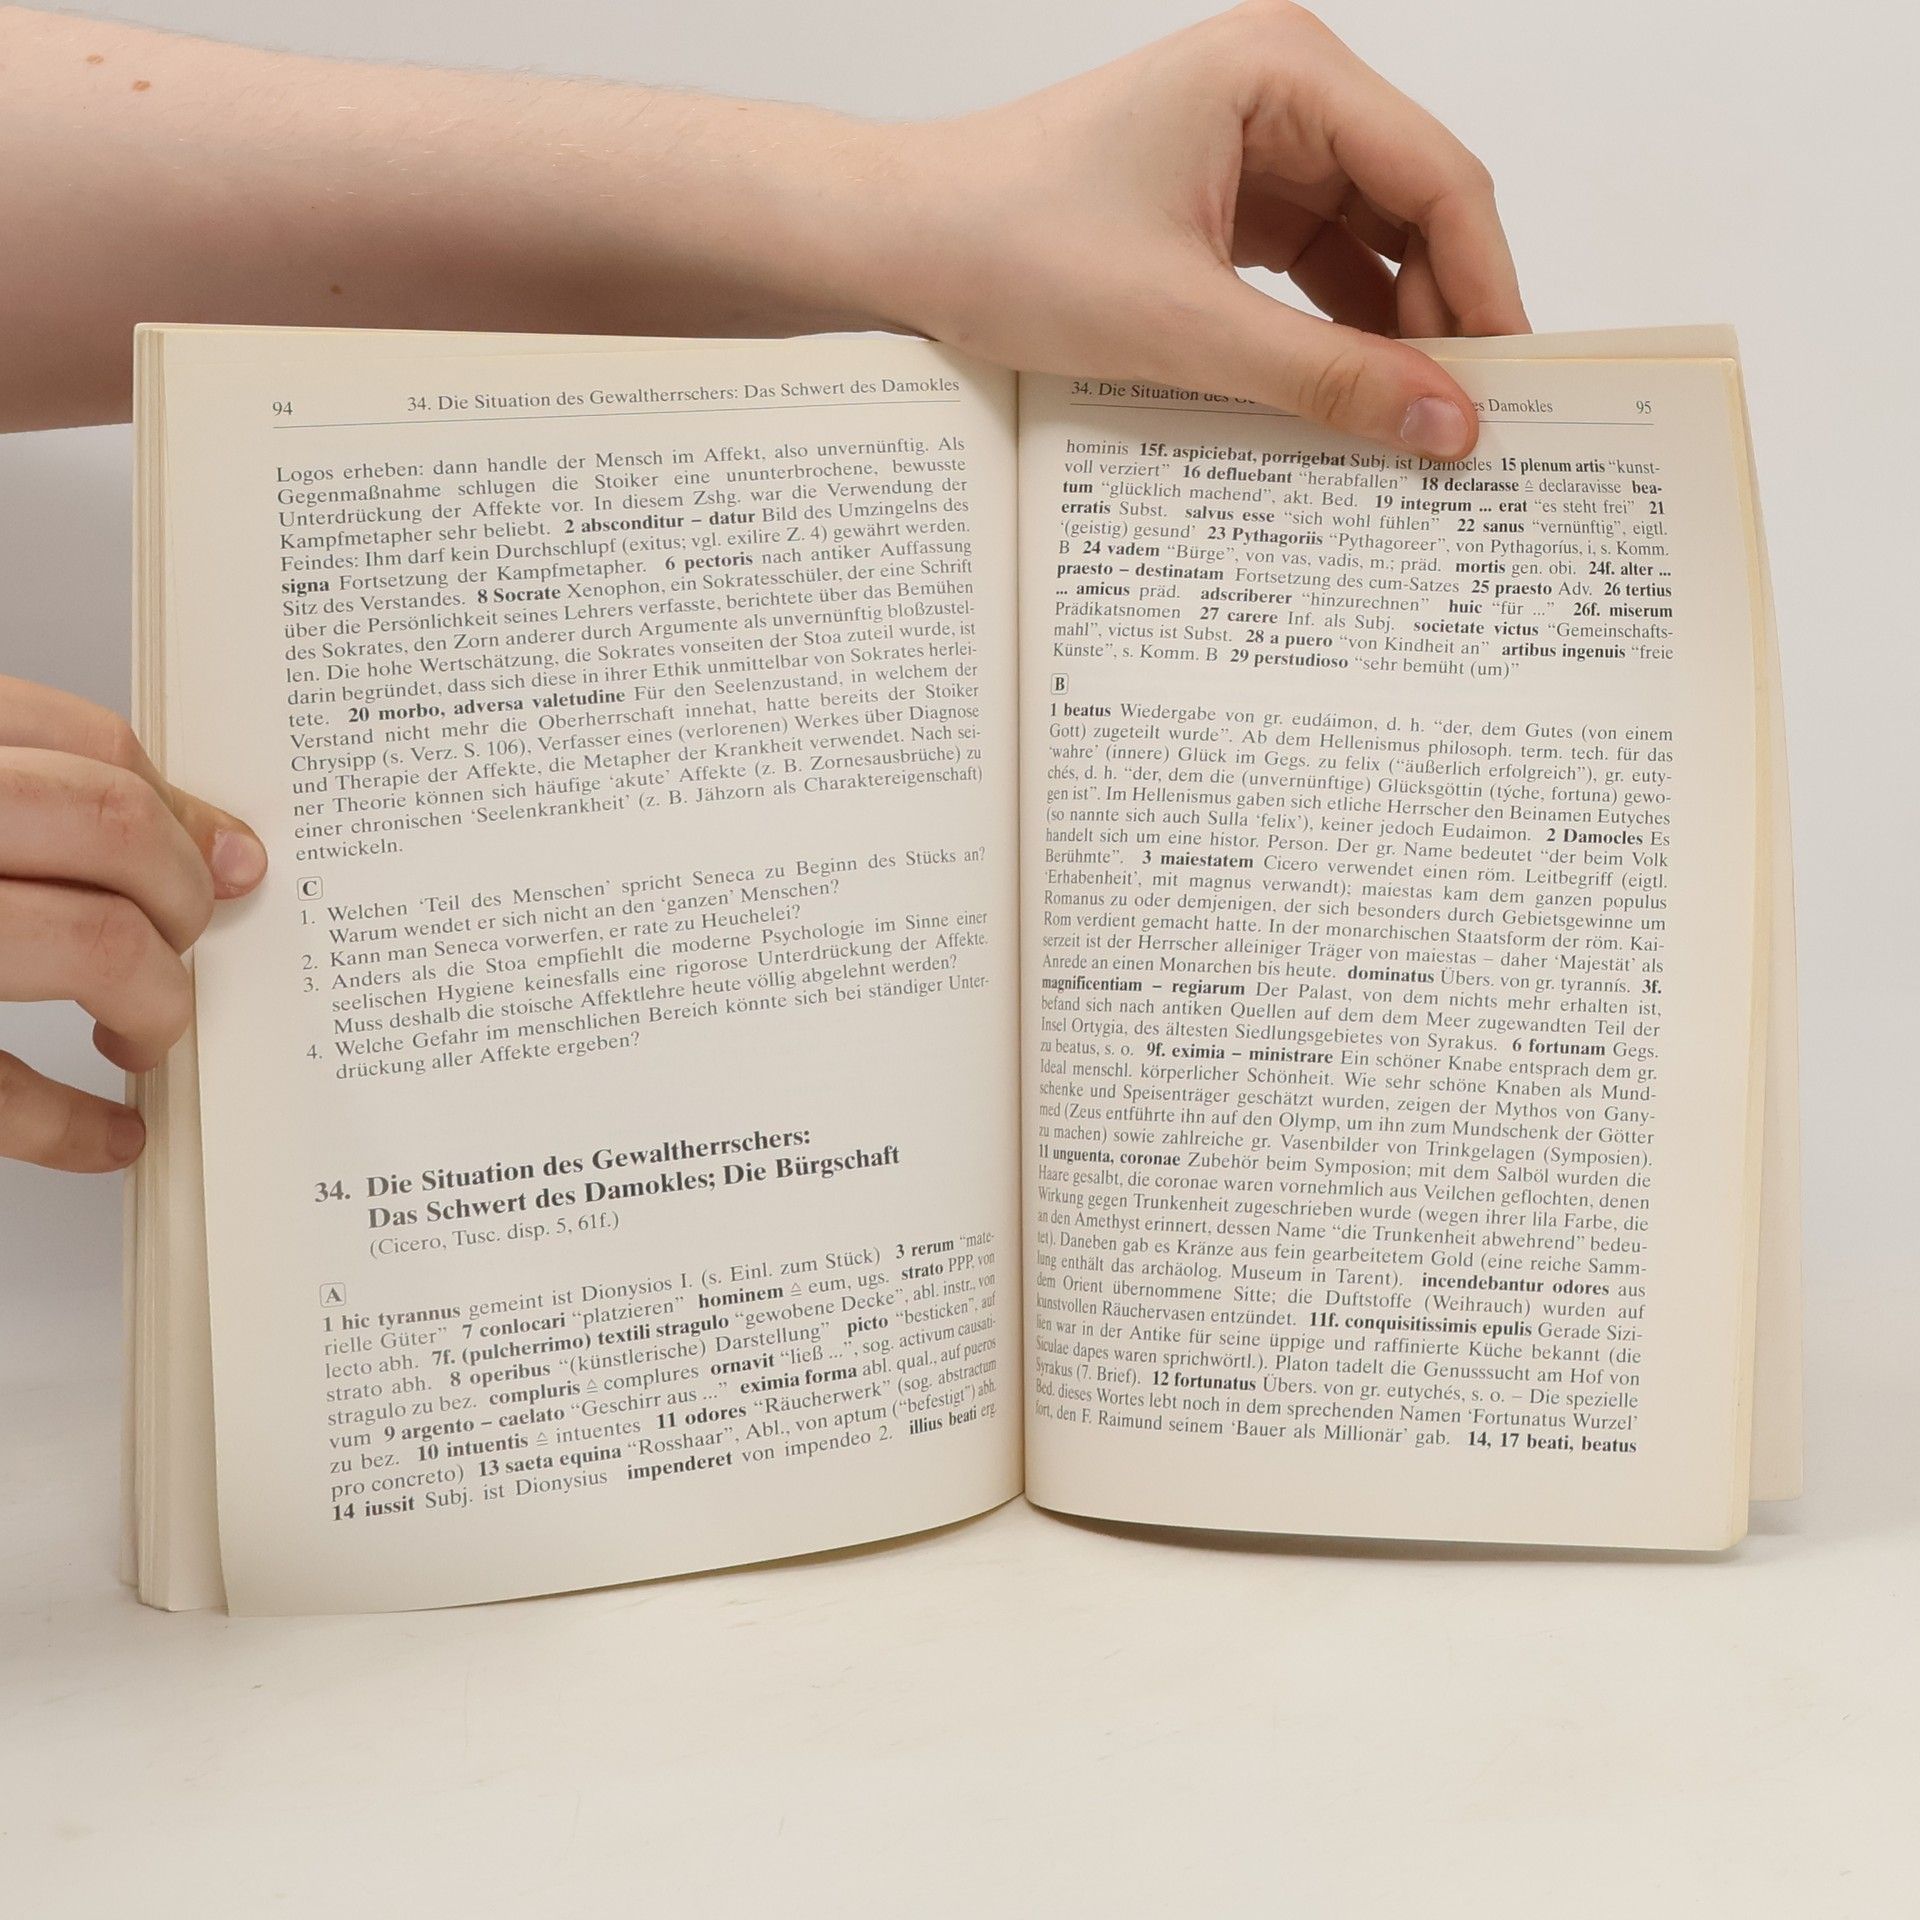 94 34. Die Situation des Gewaltherrschers: Das Schwert des Damokles
Logos erheben: dann handle der Mensch im Affekt, also unvernünftig. Als
Gegenmaßnahme schlugen die Stoiker eine ununterbrochene, bewusste
Unterdrückung der Affekte vor. In diesem Zshg. war die Verwendung der
Kampfmetapher sehr beliebt. 2 absconditur – datur Bild des Umzingelns des
Feindes: Ihm darf kein Durchschlupf (exitus; vgl. exilire Z. 4) gewährt werden.
signa Fortsetzung der Kampfmetapher. 6 pectoris nach antiker Auffassung
Sitz des Verstandes. 8 Socrate Xenophon, ein Sokratesschüler, der eine Schrift
über die Persönlichkeit seines Lehrers verfasste, berichtete über das Bemühen
des Sokrates, den Zorn anderer durch Argumente als unvernünftig bloßzustel-
len. Die hohe Wertschätzung, die Sokrates vonseiten der Stoa zuteil wurde, ist
darin begründet, dass sich diese in ihrer Ethik unmittelbar von Sokrates herlei-
tete. 20 morbo, adversa valetudine Für den Seelenzustand, in welchem der
Verstand nicht mehr die Oberherrschaft innehat, hatte bereits der Stoiker
Chrysipp (s. Verz. S. 106), Verfasser eines (verlorenen) Werkes über Diagnose
und Therapie der Affekte, die Metapher der Krankheit verwendet. Nach sei-
ner Theorie können sich häufige ‘akute’ Affekte (z. B. Zornesausbrüche) zu
einer chronischen ‘Seelenkrankheit’ (z. B. Jähzorn als Charaktereigenschaft)
entwickeln.
C
1. Welchen ‘Teil des Menschen’ spricht Seneca zu Beginn des Stücks an?
Warum wendet er sich nicht an den ‘ganzen’ Menschen?
2. Kann man Seneca vorwerfen, er rate zu Heuchelei?
3. Anders als die Stoa empfiehlt die moderne Psychologie im Sinne einer
seelischen Hygiene keinesfalls eine rigorose Unterdrückung der Affekte.
Muss deshalb die stoische Affektlehre heute völlig abgelehnt werden?
4. Welche Gefahr im menschlichen Bereich könnte sich bei ständiger Unter-
drückung aller Affekte ergeben?
34. Die Situation des Gewaltherrschers:
Das Schwert des Damokles; Die Bürgschaft
(Cicero, Tusc. disp. 5, 61f.)
A
1 hic tyrannus gemeint ist Dionysios I. (s. Einl. zum Stück) 3 rerum “mate-
rielle Güter” 7 conlocari “platzieren” hominem ≙ eum, ugs. strato PPP, von
lecto abh. 7f. (pulcherrimo) textili stragulo “gewobene Decke”, abl. instr., von
strato abh. 8 operibus “(künstlerische) Darstellung” picto “besticken”, auf
stragulo zu bez. compluris ≙ complures ornavit “ließ ...”, sog. activum causati-
vum 9 argento – caelato “Geschirr aus ...” eximia forma abl. qual., auf pueros
zu bez. 10 intuentis ≙ intuentes 11 odores “Räucherwerk” (sog. abstractum
pro concreto) 13 saeta equina “Rosshaar”, Abl., von aptum (“befestigt”) abh.
14 iussit Subj. ist Dionysius impenderet von impendeo 2. illius beati erg.
34. Die Situation des es Damokles 95
hominis 15f. aspiciebat, porrigebat Subj. ist Damocles 15 plenum artis “kunst-
voll verziert” 16 defluebant “herabfallen” 18 declarasse ≙ declaravisse bea-
tum “glücklich machend”, akt. Bed. 19 integrum ... erat “es steht frei” 21
erratis Subst. salvus esse “sich wohl fühlen” 22 sanus “vernünftig”, eigtl.
‘(geistig) gesund’ 23 Pythagoriis “Pythagoreer”, von Pythagoríus, i, s. Komm.
B 24 vadem “Bürge”, von vas, vadis, m.; präd. mortis gen. obi. 24f. alter ...
praesto – destinatam Fortsetzung des cum-Satzes 25 praesto Adv. 26 tertius
... amicus präd. adscriberer “hinzurechnen” huic “für ...” 26f. miserum
Prädikatsnomen 27 carere Inf. als Subj. societate victus “Gemeinschafts-
mahl”, victus ist Subst. 28 a puero “von Kindheit an” artibus ingenuis “freie
Künste”, s. Komm. B 29 perstudioso “sehr bemüht (um)”
B
1 beatus Wiedergabe von gr. eudáimon, d. h. “der, dem Gutes (von einem
Gott) zugeteilt wurde”. Ab dem Hellenismus philosoph. term. tech. für das
‘wahre’ (innere) Glück im Gegs. zu felix (“äußerlich erfolgreich”), gr. euty-
chés, d. h. “der, dem die (unvernünftige) Glücksgöttin (týche, fortuna) gewo-
gen ist”. Im Hellenismus gaben sich etliche Herrscher den Beinamen Eutyches
(so nannte sich auch Sulla ‘felix’), keiner jedoch Eudaimon. 2 Damocles Es
handelt sich um eine histor. Person. Der gr. Name bedeutet “der beim Volk
Berühmte”. 3 maiestatem Cicero verwendet einen röm. Leitbegriff (eigtl.
‘Erhabenheit’, mit magnus verwandt): maiestas kam dem ganzen populus
Romanus zu oder demjenigen, der sich besonders durch Gebietsgewinne um
Rom verdient gemacht hatte. In der monarchischen Staatsform der röm. Kai-
serzeit ist der Herrscher alleiniger Träger von maiestas – daher ‘Majestät’ als
Anrede an einen Monarchen bis heute. dominatus Übers. von gr. tyrannís. 3f.
magnificentiam – regiarum Der Palast, von dem nichts mehr erhalten ist,
befand sich nach antiken Quellen auf dem dem Meer zugewandten Teil der
Insel Ortygia, des ältesten Siedlungsgebietes von Syrakus. 6 fortunam Gegs.
zu beatus, s. o. 9f. eximia – ministrare Ein schöner Knabe entsprach dem gr.
Ideal menschl. körperlicher Schönheit. Wie sehr schöne Knaben als Mund-
schenke und Speisenträger geschätzt wurden, zeigen der Mythos von Gany-
med (Zeus entführte ihn auf den Olymp, um ihn zum Mundschenk der Götter
zu machen) sowie zahlreiche gr. Vasenbilder von Trinkgelagen (Symposien).
11 unguenta, coronae Zubehör beim Symposion; mit dem Salböl wurden die
Haare gesalbt, die coronae waren vornehmlich aus Veilchen geflochten, denen
Wirkung gegen Trunkenheit zugeschrieben wurde (wegen ihrer lila Farbe, die
an den Amethyst erinnert, dessen Name “die Trunkenheit abwehrend” bedeu-
tet). Daneben gab es Kränze aus fein gearbeitetem Gold (eine reiche Samm-
lung enthält das archäolog. Museum in Tarent). incendebantur odores aus
dem Orient übernommene Sitte; die Duftstoffe (Weihrauch) wurden auf
kunstvollen Räuchervasen entzündet. 11f. conquisitissimis epulis Gerade Sizi-
lien war in der Antike für seine üppige und raffinierte Küche bekannt (die
Siculae dapes waren sprichwörtl.). Platon tadelt die Genusssucht am Hof von
Syrakus (7. Brief). 12 fortunatus Übers. von gr. eutychés, s. o. – Die spezielle
Bed. dieses Wortes lebt noch in dem sprechenden Namen ‘Fortunatus Wurzel’
fort, den F. Raimund seinem ‘Bauer als Millionär’ gab. 14, 17 beati, beatus